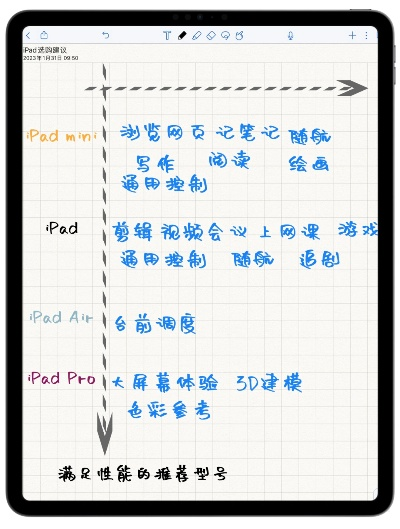 iPad选购建议
2023年1月31日 09:50
iPad mini
浏览网页 记笔记 随航
写作 阅读 绘画
通用控制
iPad
剪辑视频会议上网课 游戏
通用控制 随航 追剧
iPad Air
台前调度
iPad Pro
大屏幕体验 3D建模
色彩参考
满足性能的推荐型号